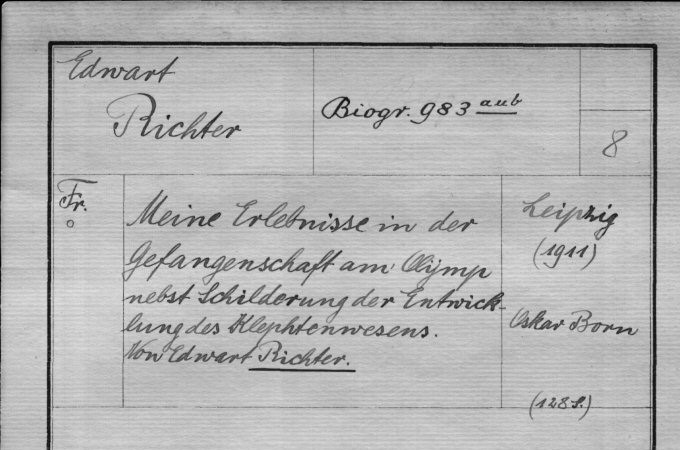 Edwart
Richter
Biogr. 983 aub
8
Fr.
Meine Erlebnisse in der
Gefangenschaft am Olymp
nebst Schilderung der Entwick-
lung des Klephtenwesens.
Von Edwart Richter.
Leipzig
(1911)
Oskar Born
(128 S.)